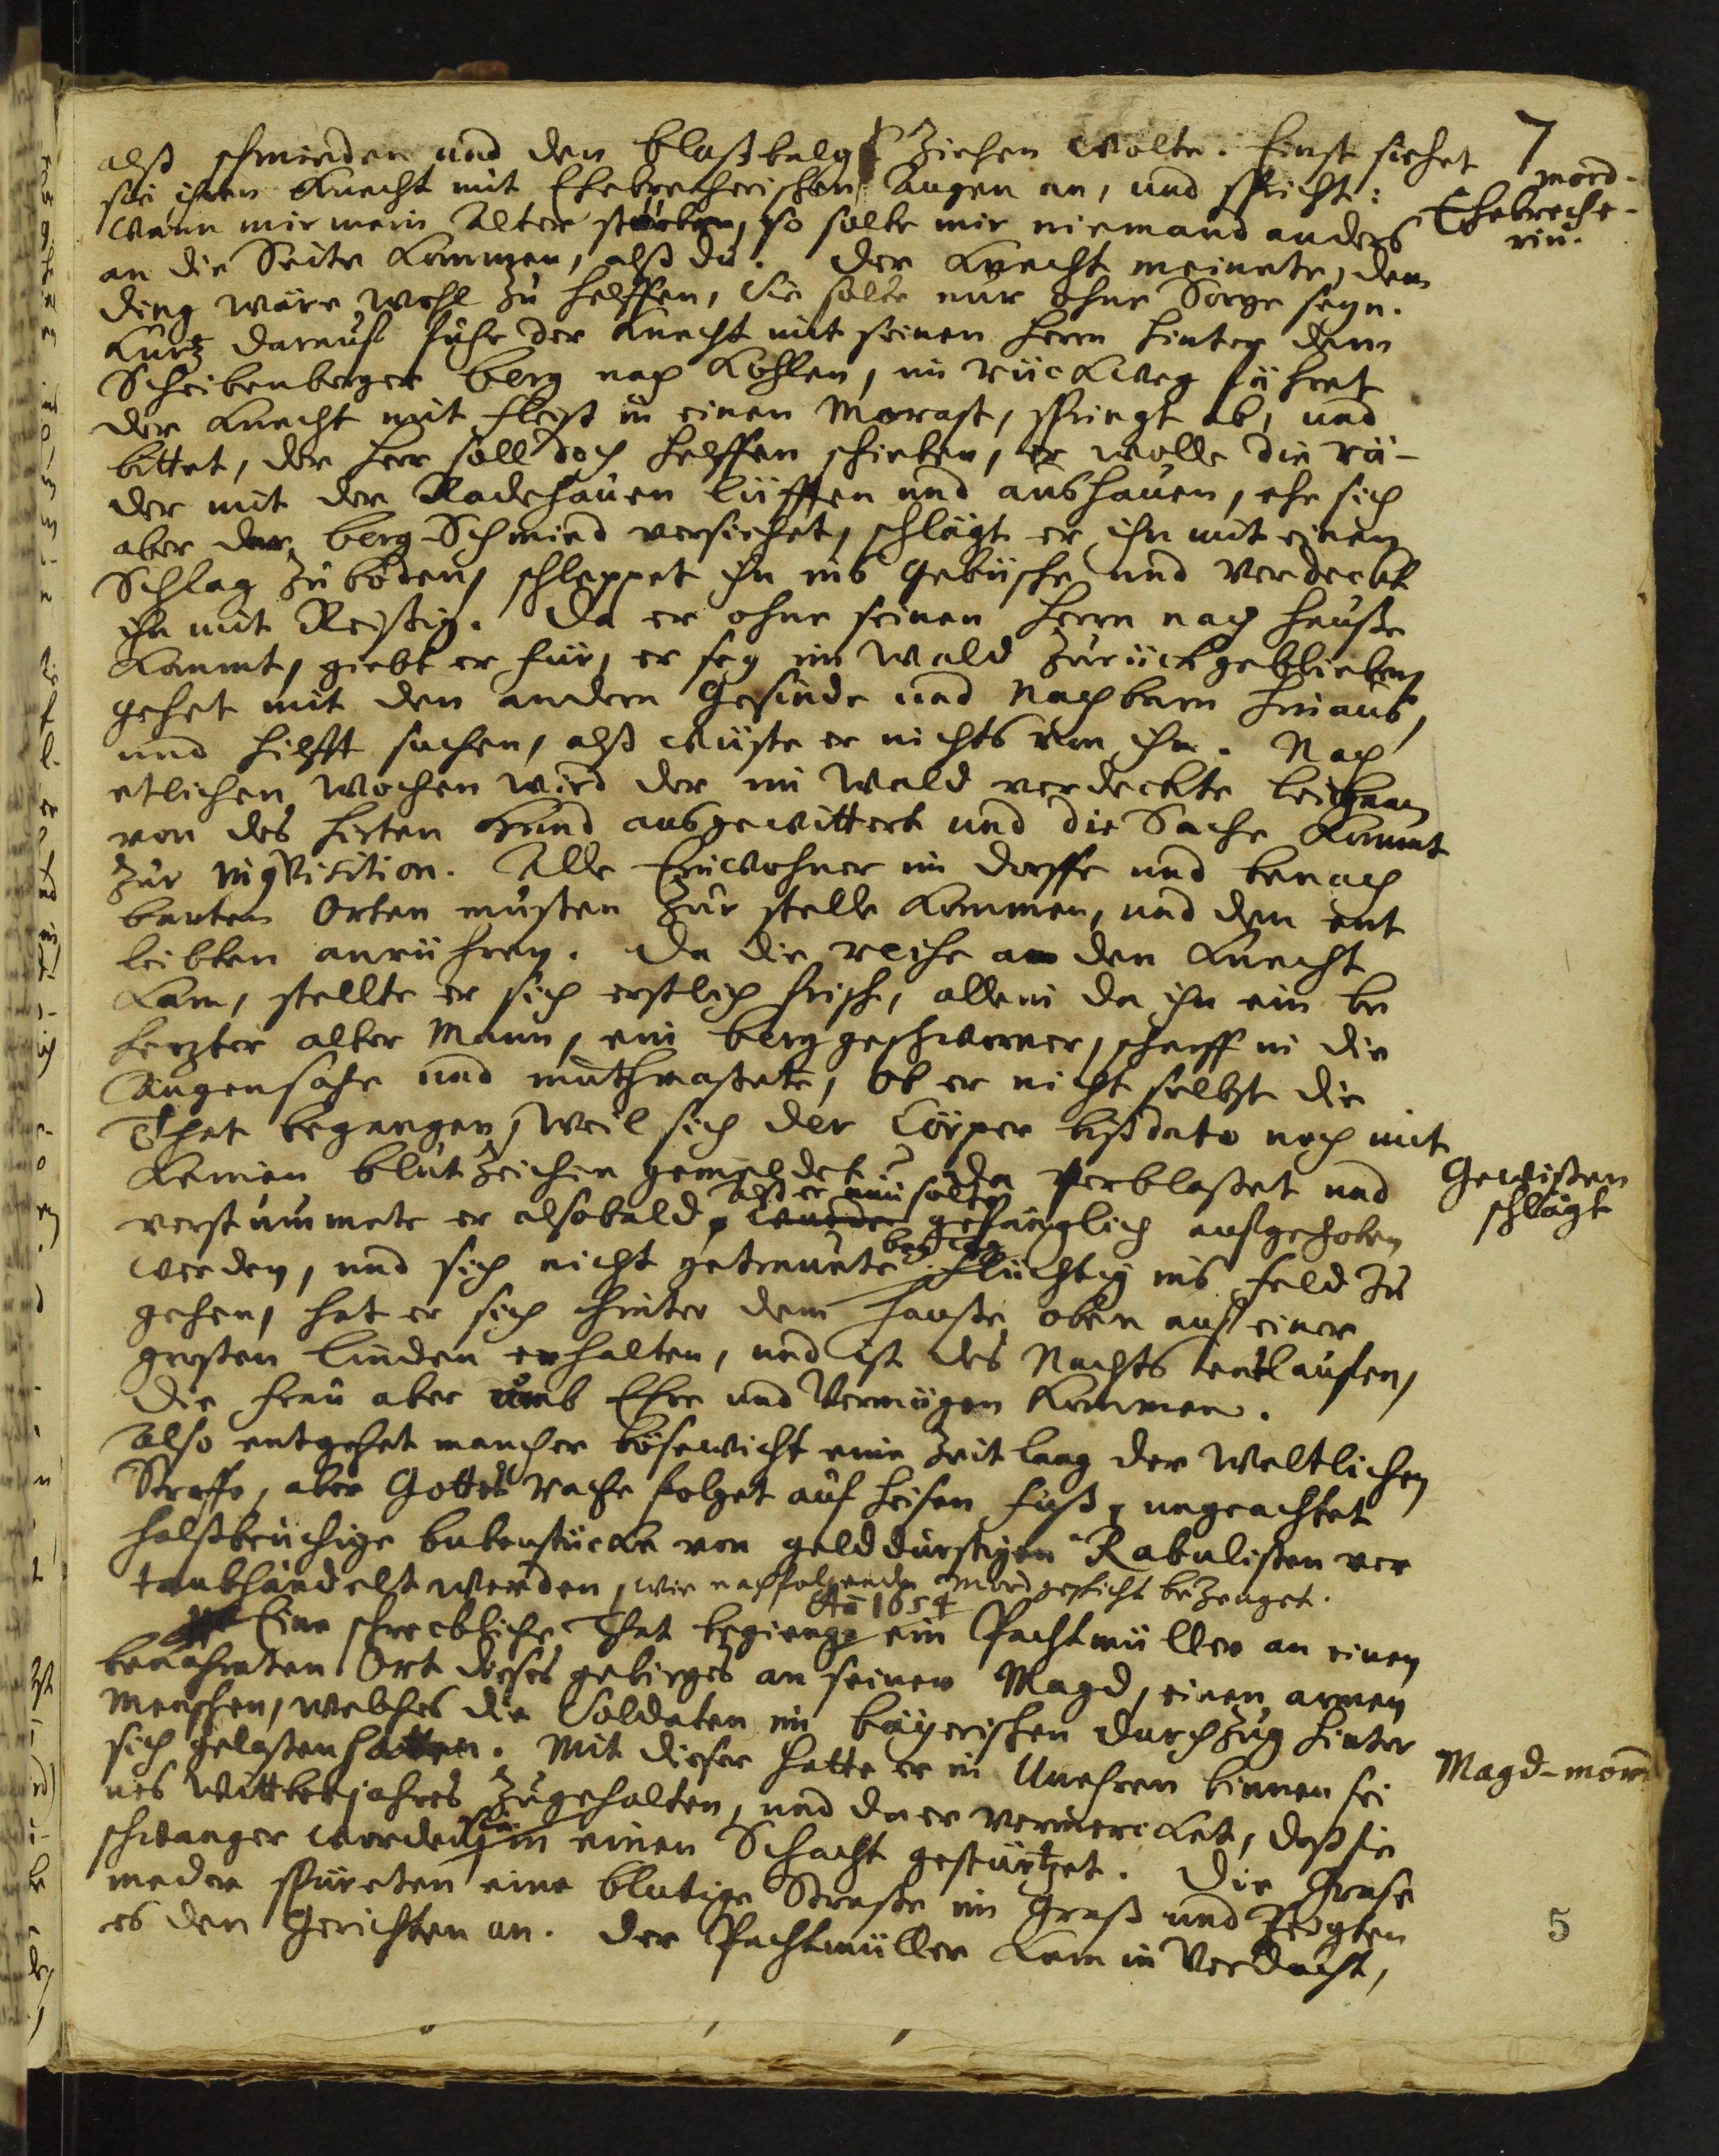 7
alß schmieden und den Blaßbalg ziehen wolte. Einst siehet
sie ihren Knecht mit Ehebrecherischen Augen an, und spricht:
mord-
Ehebreche-
rin.
wann mir mein Alter stürbe, so solte mir niemand anders
an die Seite kommen, alß du. Der Knecht meinete, dem
ding wäre wohl zu helffen, Sie solte nur ohne Sorge seyn.
Kurtz darauf fuhr der Knecht mit seinen Herrn hinter dem
Scheibenberger Berg nach Kohlen, im rückweg führet
der Knecht mit fleiß in einen Morast, springt ab, und
bittet, der Herr soll doch helffen schieben, er wolle die rä-
der mit der Radehauen lüfften und aushauen, ehe sich
aber der Berg-Schmied versiehet, schlägt er ihn mit einen
Schlag zu boden, schleppet ihn ins Gebüsche und verdeckt
ihn mit Reißig. Da er ohne seinen Herrn nach hauße
kommt, giebt er für, er sey im Wald zurückgeblieben,
gehet mit den andern Gesinde und Nachbarn hinaus,
und hilfft suchen, alß wüste er nichts von ihn. Nach
etlichen Wochen wird der im Wald verdeckte Leichnam
von des Hirten Hund ausgewittert und die Sache kommt
zur inqvisition. Alle Einwohner im dorffe und benach
barten Orten musten zur stelle kommen, und den ent
leibten anrühren. Da die reihe an den Knecht
kam, stellte er sich erstlich frisch, allein da ihn ein be
herzter alter Mann, ein Berggeschworner, scharff in die
Augen sahe und muthmaßete, ob er nicht selbst die
That begangen, weil sich der Cörper bißdato noch mit
keinen Blutzeichen gemeldet? da verblaßet und
Gewißen
schlägt
verstummete er alsobald, alß er nun solte gefänglich aufgehoben
werden, und sich nicht getrauete bey tag flüchtig ins feld zu
gehen, hat er sich hinter dem Hauße oben auf einer
großen Linden erhalten, und ist des Nachts entlaufen,
die Frau aber umb Ehre und Vermögen kommen.
Also entgehet mancher bösewicht eine Zeitlang der Weltlichen
Straffe, aber Gottes rache folget auf heisen fuß, ungeachtet
halßbrüchige bubenstücke von gelddürstigen Rabulisten ver
tenthändelst werden, wie nachfolgende Mordgeschicht bezeuget.
Ao 1654
Eine schreckliche That begienge ein Pachtmüller an einen
benahmten Ort dieses gebirges an seiner Magd, einen armen
Menschen, welches die Soldaten im bäyerischen durchzug hinter
sich gelaßen hatten. Mit dieser hatte er in Unehren binnen sei
Magd-mord
nes Wittberjahres zugehalten, und da er vermercket, daß sie
schwanger worden, sie in einen Schacht gestürtzet. Die Grase
meder spüreten eine blutige Straße im Graß und zeigten
es den Gerichten an. Der Pachtmüller kam in Verdacht,
5